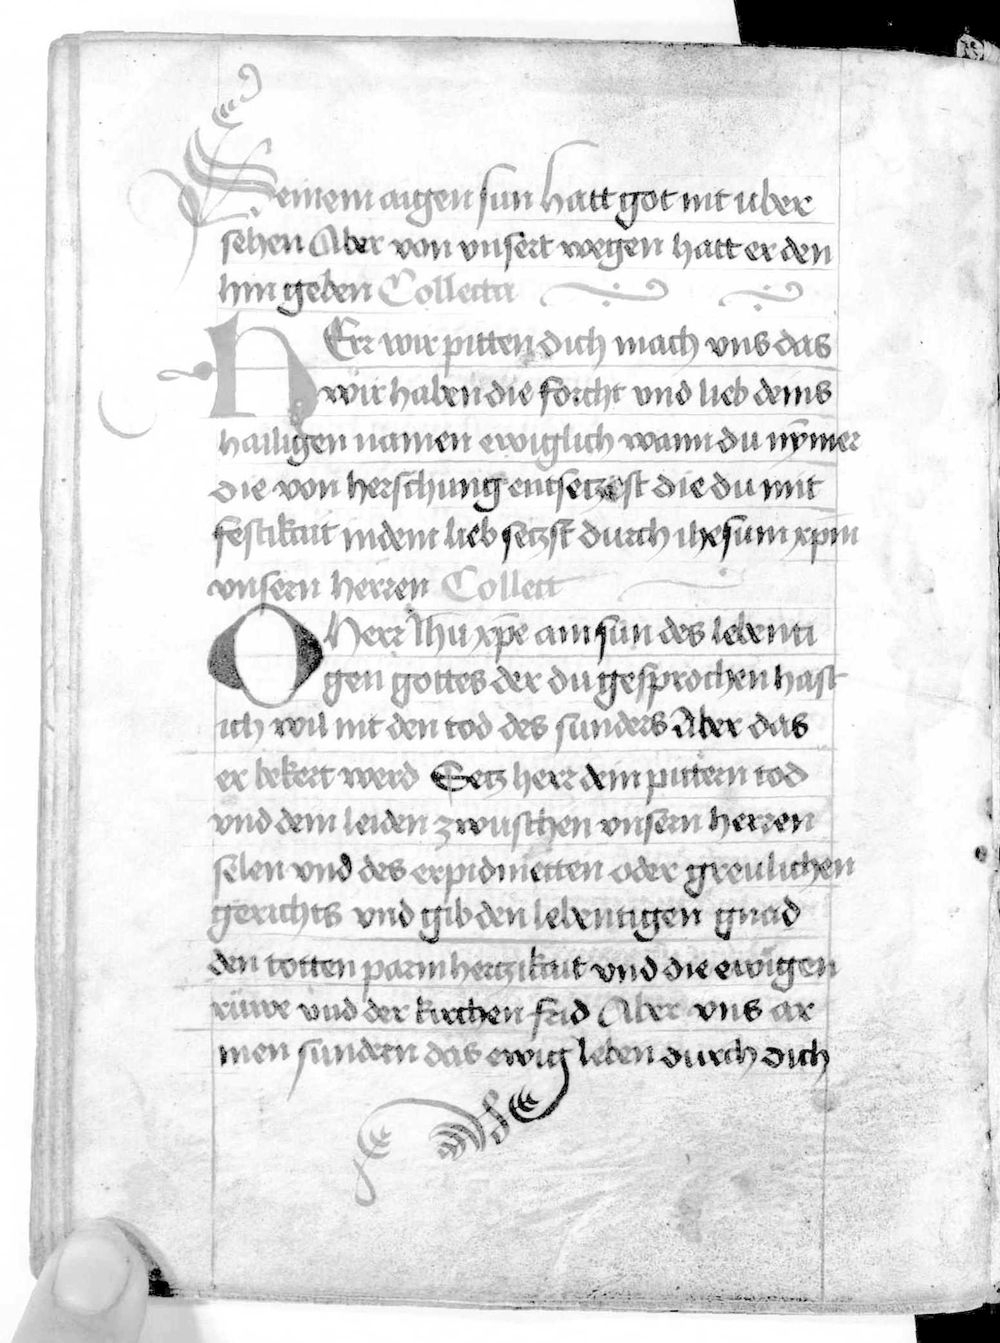 Seinem aigen sun hatt got nit uber
sehen Aber von vnsert wegen hatt er den
hin geben Collecta
HErr wir pitten dich mach vns das
wir haben die forcht vnd lieb deins
hailigen namen ewiglich wann du nymer
die von herschung entsetzest die du mit
festikait in dein lieb setzst durch ihesum xpm
vnsern herren Collect
O Herr Ihu xpe ain sun des lebenti
gen gottes der du gesprochen hast
ich wil nit den tod des sunders Aber das
er bekert werd Setz herr dein pittern tod
vnd dein leiden zwuschen vnsern herren
selen vnd des erpidmetten oder greulichen
gerichts vnd gib den lebentigen gnad
den totten parmhertzikait vnd die ewigen
rüwe vnd der kirchen frid Aber vns ar
men sundern das ewig leben durch dich